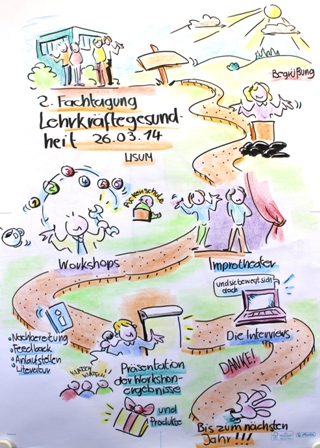 Begrüßung
2. Fachtagung
Lehrkräftegesund-
heit 26.03.14
LISUM
Workshops
Improtheater
und sie bewegt sich
doch
Die Interviews
Nachbereitung
Feedback
Anlaufstellen
Literatur
Präsentation
der Workshop-
ergebnisse
und
Produkte
DANKE!
Bis zum nächsten
Jahr!!!